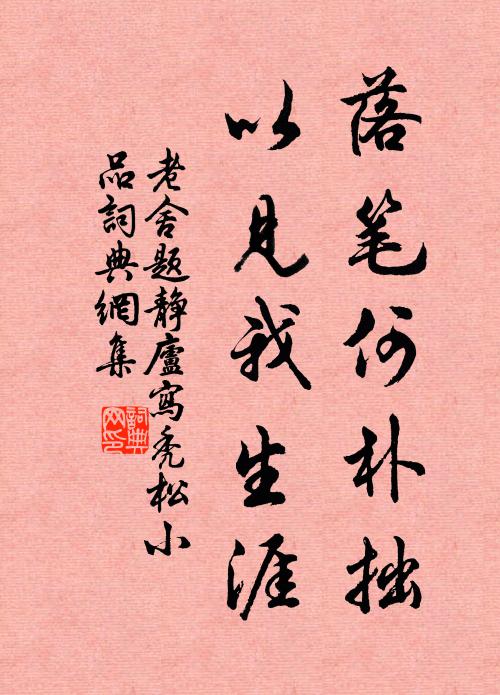 落笔何朴拙
以見我生涯
老舍題靜廬寫禿松小
品詞典網集
詞典网印